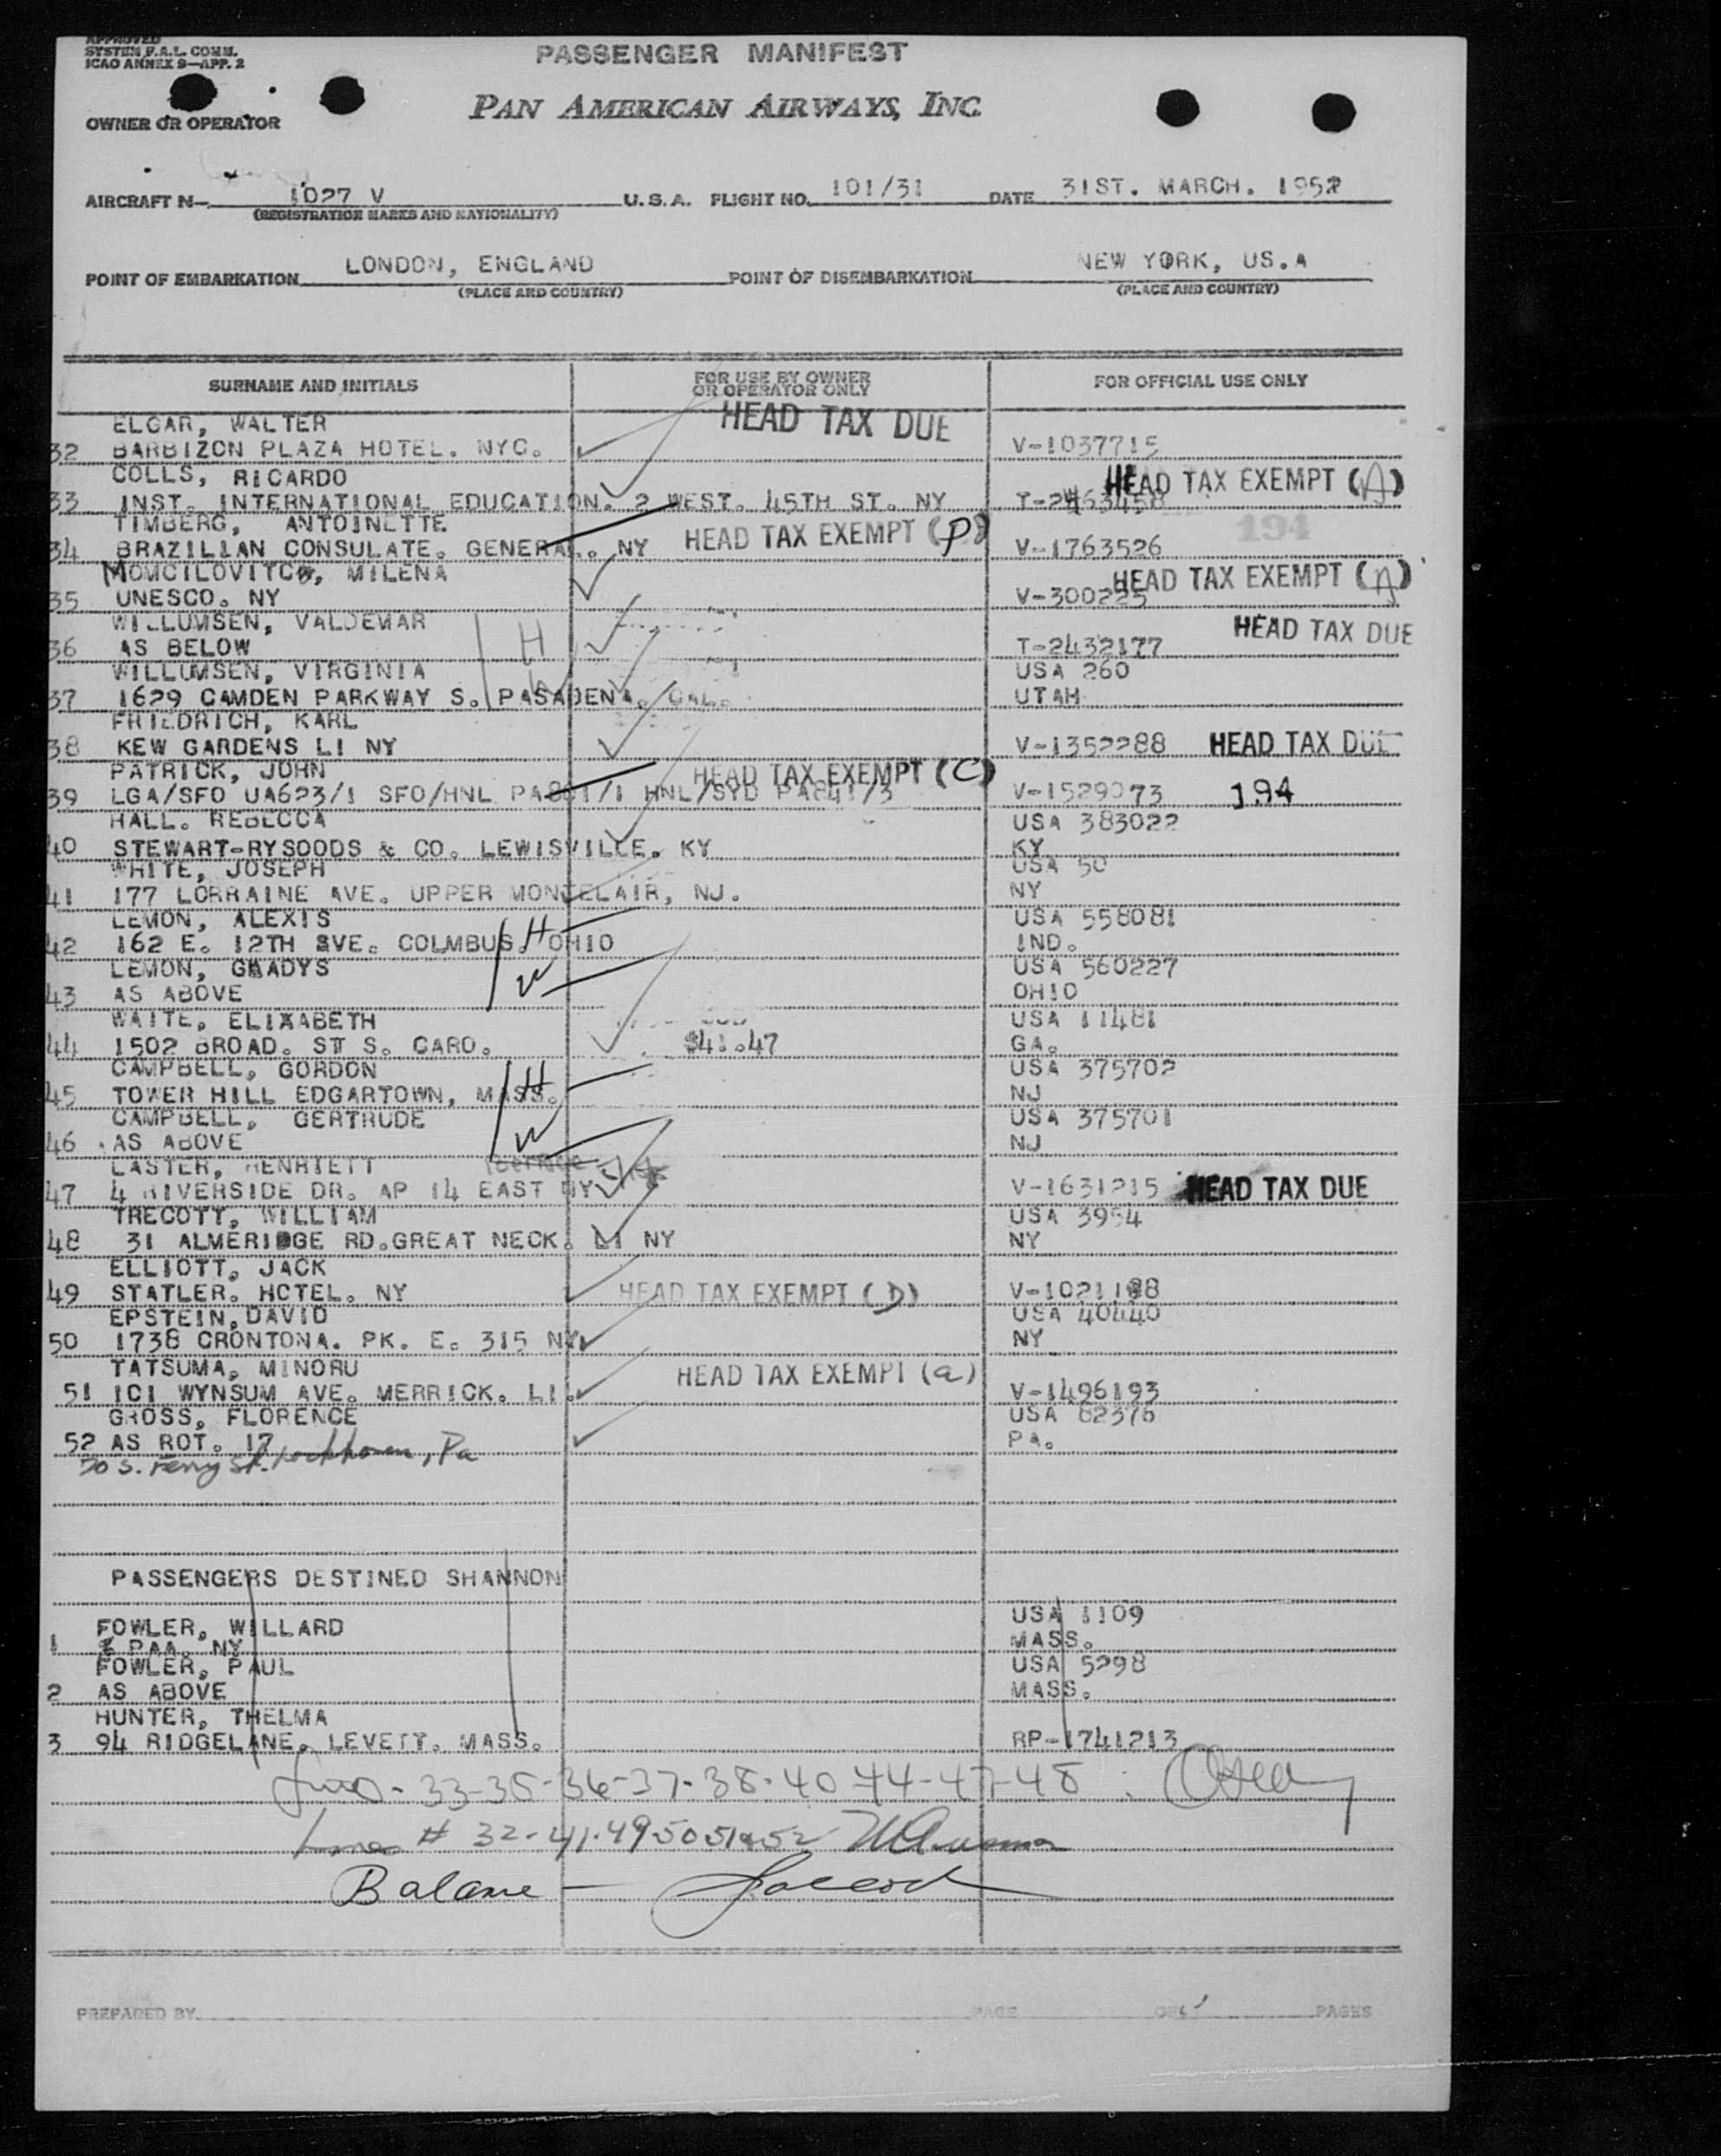 APPROVED
SYSTEM F.A.L. COMM.
ICAO ANNEX 9—APP. 2
PASSENGER MANIFEST
PAN AMERICAN AIRWAYS, INC.
OWNER OR OPERATOR
AIRCRAFT N— 1027 V U.S.A. FLIGHT NO. 101/31 DATE 31ST. MARCH. 1952
(REGISTRATION MARKS AND NATIONALITY)
POINT OF EMBARKATION LONDON, ENGLAND POINT OF DISEMBARKATION NEW YORK, US.A
(PLACE AND COUNTRY) (PLACE AND COUNTRY)
SURNAME AND INITIALS FOR USE BY OWNER OR OPERATOR ONLY FOR OFFICIAL USE ONLY
ELGAR, WALTER HEAD TAX DUE
32 BARBIZON PLAZA HOTEL. NYC. V-1037715
COLLS, RICARDO HEAD TAX EXEMPT (A)
33 INST. INTERNATIONAL EDUCATION. 2 WEST. 45TH ST. NY T-2463458
TIMBERG, ANTOINETTE HEAD TAX EXEMPT (P) 194
34 BRAZILLAN CONSULATE. GENERAL. NY V-1763526
MOMCILOVITCH, MILENA HEAD TAX EXEMPT (A)
35 UNESCO. NY V-300225
WILLUMSEN, VALDEMAR H HEAD TAX DUE
36 AS BELOW T-2432177
WILLUMSEN, VIRGINIA W USA 260
37 1629 CAMDEN PARKWAY S. PASADENA. CAL. UTAH
FRIEDRICH, KARL
38 KEW GARDENS LI NY V-1352288 HEAD TAX DUE
PATRICK, JOHN HEAD TAX EXEMPT (C)
39 LGA/SFO UA623/1 SFO/HNL PA801/1 HNL/SYD PA841/3 V-1529073 194
HALL. REBECCA USA 383022
40 STEWART-RYSOODS & CO. LEWISVILLE. KY KY
WHITE, JOSEPH USA 50
41 177 LORRAINE AVE. UPPER MONTCLAIR, NJ. NY
LEMON, ALEXIS H USA 558081
42 162 E. 12TH AVE. COLMBUS. OHIO IND.
LEMON, GLADYS W USA 560227
43 AS ABOVE OHIO
WAITE, ELIXABETH USA 11481
44 1502 BROAD. ST S. CARO. $41.47 GA.
CAMPBELL, GORDON H USA 375702
45 TOWER HILL EDGARTOWN, MASS. NJ
CAMPBELL, GERTRUDE W USA 375701
46 AS ABOVE NJ
LASTER, HENRIETT
47 4 RIVERSIDE DR. AP 14 EAST NY V-1631215 HEAD TAX DUE
TRECOTT, WILLIAM USA 3954
48 31 ALMERIDGE RD.GREAT NECK. LI NY NY
ELLIOTT, JACK
49 STATLER. HOTEL. NY HEAD TAX EXEMPT (D) V-1021188
EPSTEIN, DAVID USA 40440
50 1738 CRONTONA. PK. E. 315 NY. NY
TATSUMA, MINORU HEAD TAX EXEMPT (a)
51 101 WYNSUM AVE. MERRICK. LI. V-1496193
GROSS, FLORENCE USA 62376
52 AS ROT. 17 PA.
20 S. Ferry St. Lockhaven, Pa
PASSENGERS DESTINED SHANNON
FOWLER, WILLARD USA 1109
1 % PAA. NY MASS.
FOWLER, PAUL USA 5298
2 AS ABOVE MASS.
HUNTER, THELMA
3 94 RIDGELANE. LEVETT. MASS. RP-1741213
33-35-36-37-38-40-44-47-48
# 32-41-49-50 51+52
Balance —
PREPARED BY PAGE OF PAGES